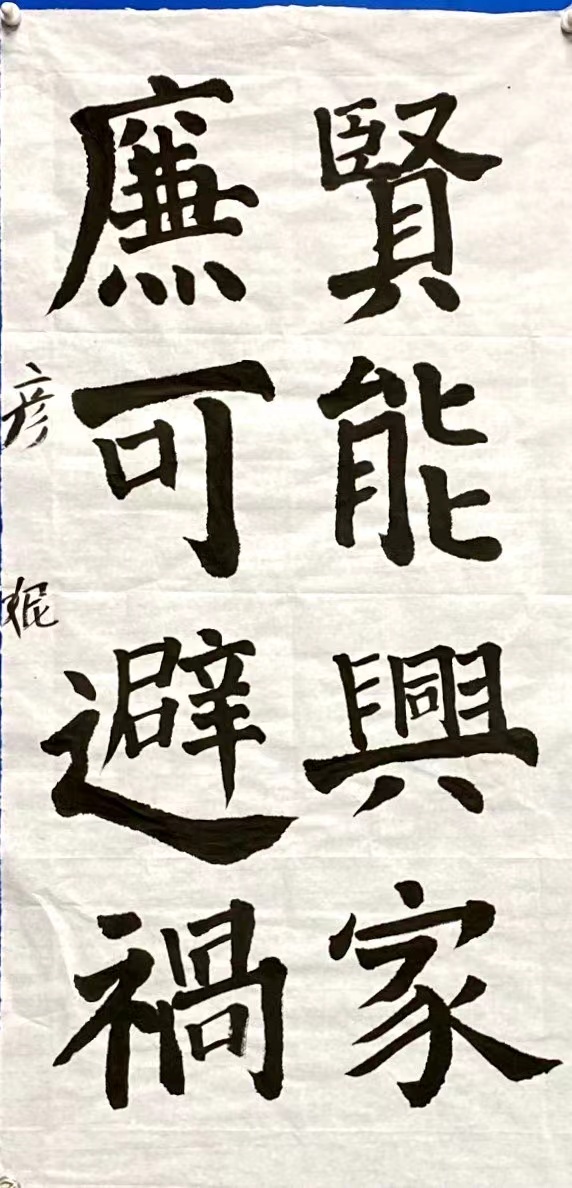 賢能興家
廉可避禍
彦